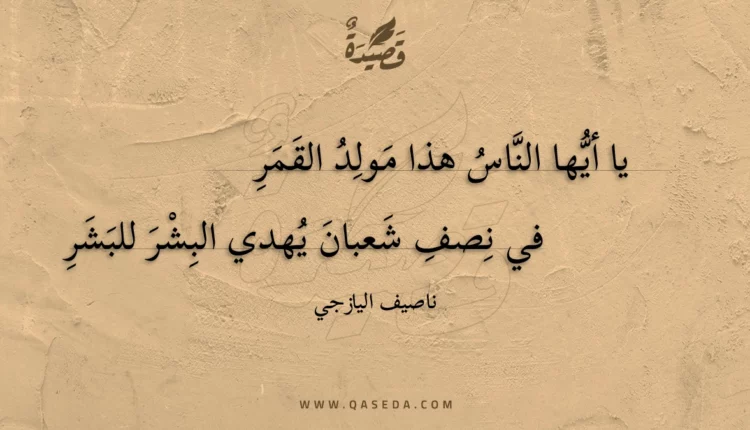 قَصِيدَةٌ
يا أيُّها النَّاسُ هذا مَولِدُ القَمَرِ
في نِصفِ شَعبانَ يُهدي البِشْرَ للبَشَرِ
ناصيف اليازجي
WWW.QASEDA.COM